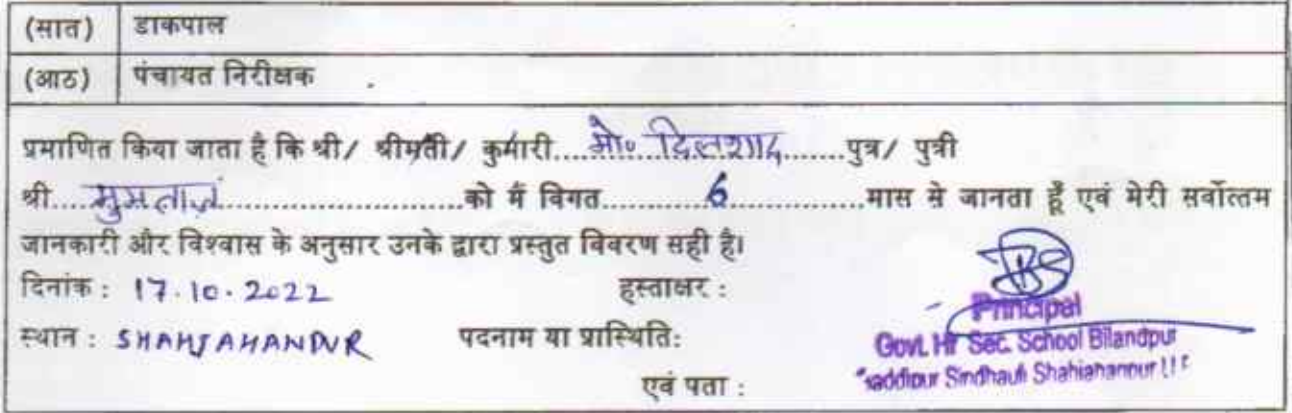 (सात) डाकपाल
(आठ) पंचायत निरीक्षक
प्रमाणित किया जाता है कि श्री/ श्रीमती/ कुमारी....मो॰ दिलशाद.......पुत्र/ पुत्री
श्री.....मुमताज़.........................को मैं विगत...........6..............मास से जानता हूँ एवं मेरी सर्वोत्तम
जानकारी और विश्वास के अनुसार उनके द्वारा प्रस्तुत विवरण सही है।
दिनांक : 17.10.2022 हस्ताक्षर :
Principal
स्थान : SHAHJAHANPUR पदनाम या प्रास्थिति: Govt. Hr Sec. School Bilandpur
Sindhauli Shahjahanpur
एवं पता :